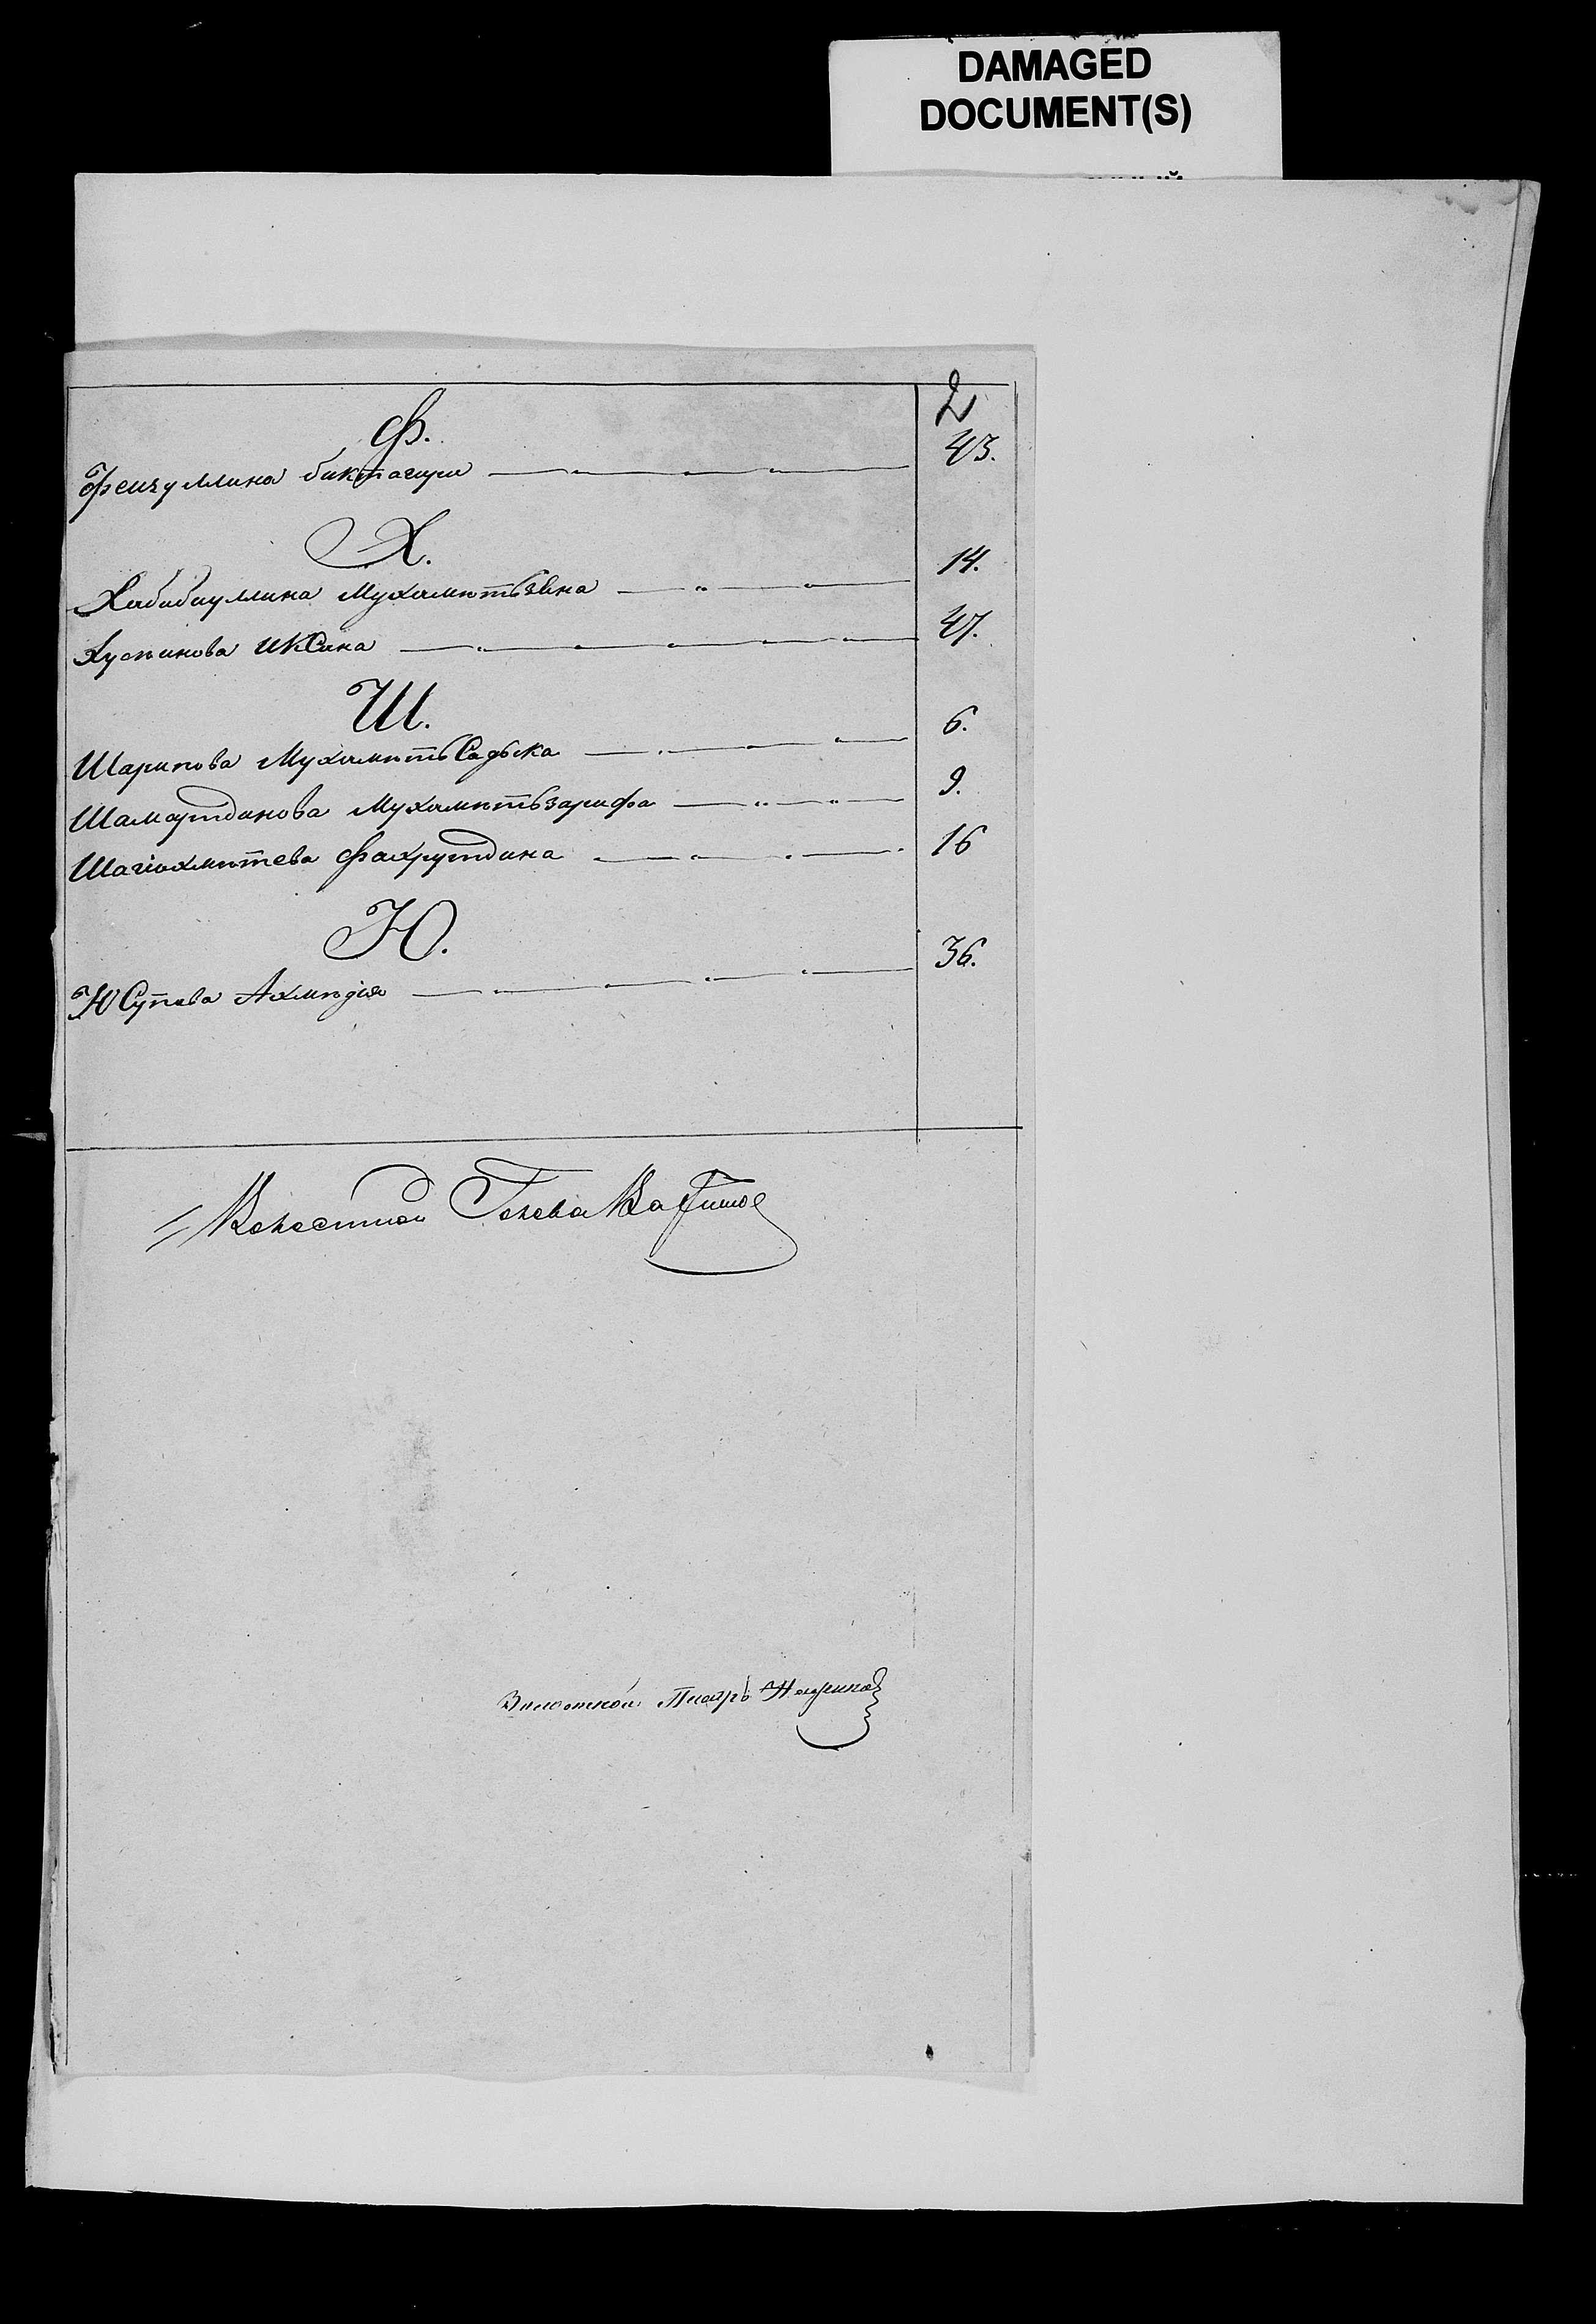 DAMAGED
DOCUMENT(S)
2
Ф.
Феизуллина биктагира 43.
Х.
Хабибиуллина Мухаметьзяна 14.
Хусеинова иксана 47.
Ш.
Шарипова МухаметьСадыка 6.
Шамаутдинова Мухаметьзарифа 9.
Шагіахметева Фахрутдина 16
Ю.
ЮСупова Ахмедія 36.
Волостной Голова
Волостной Писарь